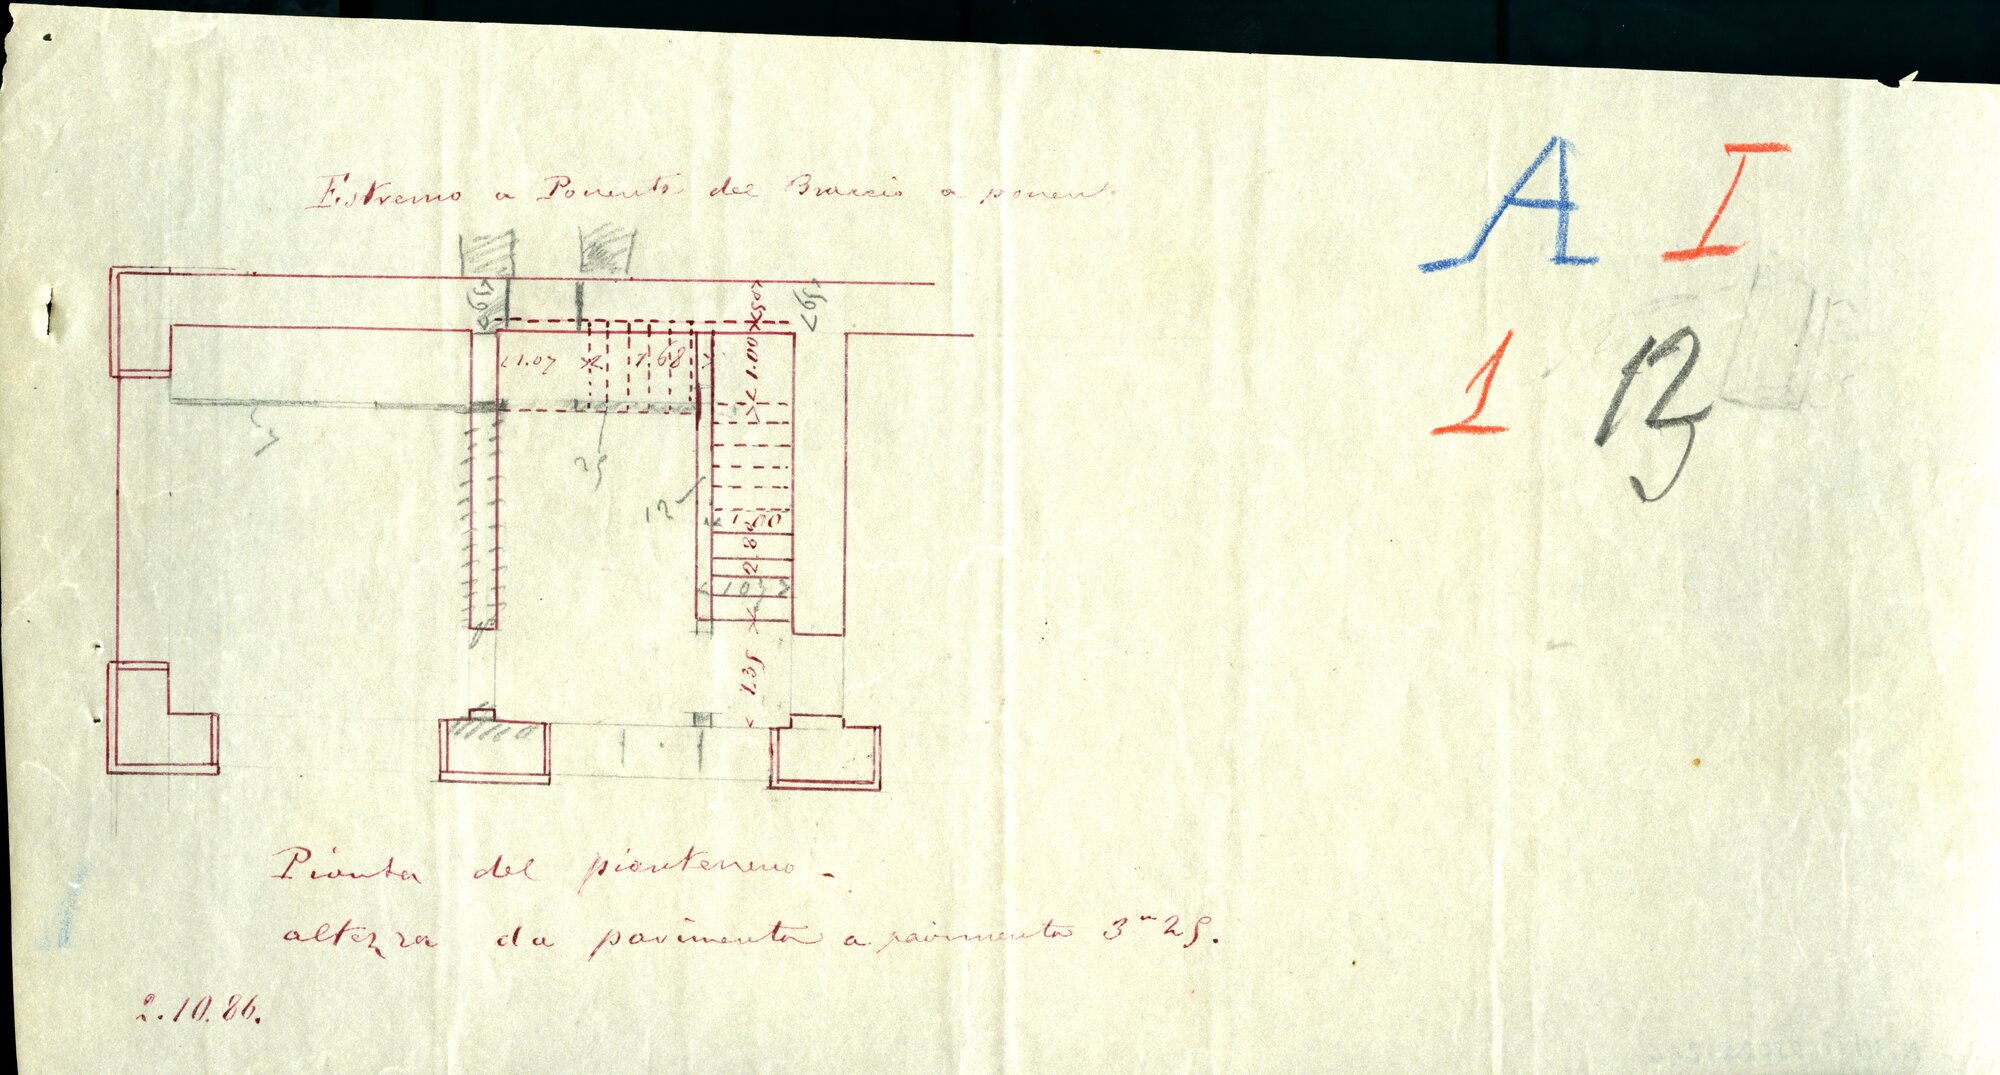 Estremo a Ponente del Braccio a ponent
A I
1 13
1.07
1.68
50
1.00
25
12
1.00
2.8
1.35
Pianta del pianterreno -
altezza da pavimento a pavimento 3 m 25.
2.10.86.